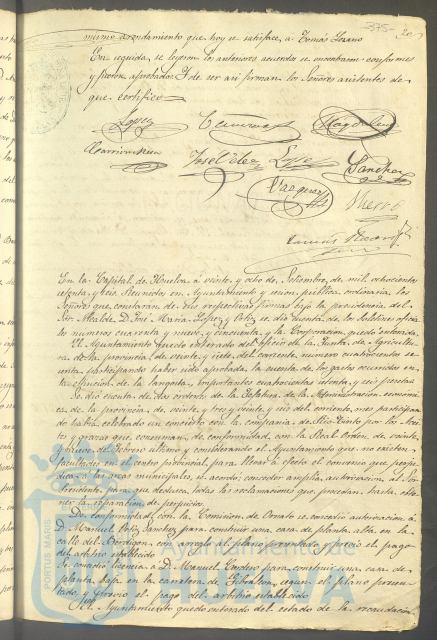 mismo arrendamiento que hoy se satisface, a Tomás Lozano
En seguida se leyeron los anteriores acuerdos se encontraron conformes
y fueron aprobados. Y de ser así firman los Señores asistentes de
que certifico
López
José Vélez
Sánchez
Vázquez
En la Capital de Huelva á veinte y ocho de Setiembre de mil ochocientos
setenta y seis Reunidos en Ayuntamiento y sesion publica ordinaria los
Señores que constaran de sus respectivas firmas bajo la presidencia del
Sor. Alcalde D. José Maria López y Ortiz se dio cuenta de los Boletines oficia
les numeros cuarenta y nueve y cincuenta y la Corporacion quedo enterada.
El Ayuntamiento quedó enterado del oficio de la Junta de Agricultu
ra de la provincia de veinte y siete del corriente numero cuatrocientos se
senta participando haber sido aprobada la cuenta de los gastos ocurridos en
la estincion de la langosta, importantes cuatrocientas setenta y seis pesetas
Se dio cuenta de dos ordenes de la Jefatura de la Administracion economi
ca de la provincia, de veinte y tres y veinte y seis del corriente, mes participan
do habia celebrado un concierto con la compania de Rio-Tinto por los
y gravar que consuman, de conformidad con la Real Orden de veinte
y nueve de Febrero ultimo y considerando el Ayuntamiento que no existen
facultades en el centro provincial para llevar á efecto el convenio que perju
dica á las arcas municipales, se acordo: conceder amplia autorizacion al Sor
Presidente para que deduzca todas las reclamaciones que procedan hasta obte
ner la reparacion de perjuicios
De conformidad con la Comision de Ornato se concedió autorización á
D. Manuel Ortiz Sanchez para construir una casa de planta alta en la
calle del con arreglo al plano presentado y previo el pago
del arbitrio establecido
Se concedió licencia á D. Manuel Cordero para construir una casa de
planta baja en la carretera de Gibraleon, segun el plano presen
tado, y previo el pago del arbitrio establecido
El Ayuntamiento quedo enterado del estado de la recaudación
PORTUS MARIS
Ayuntamiento de